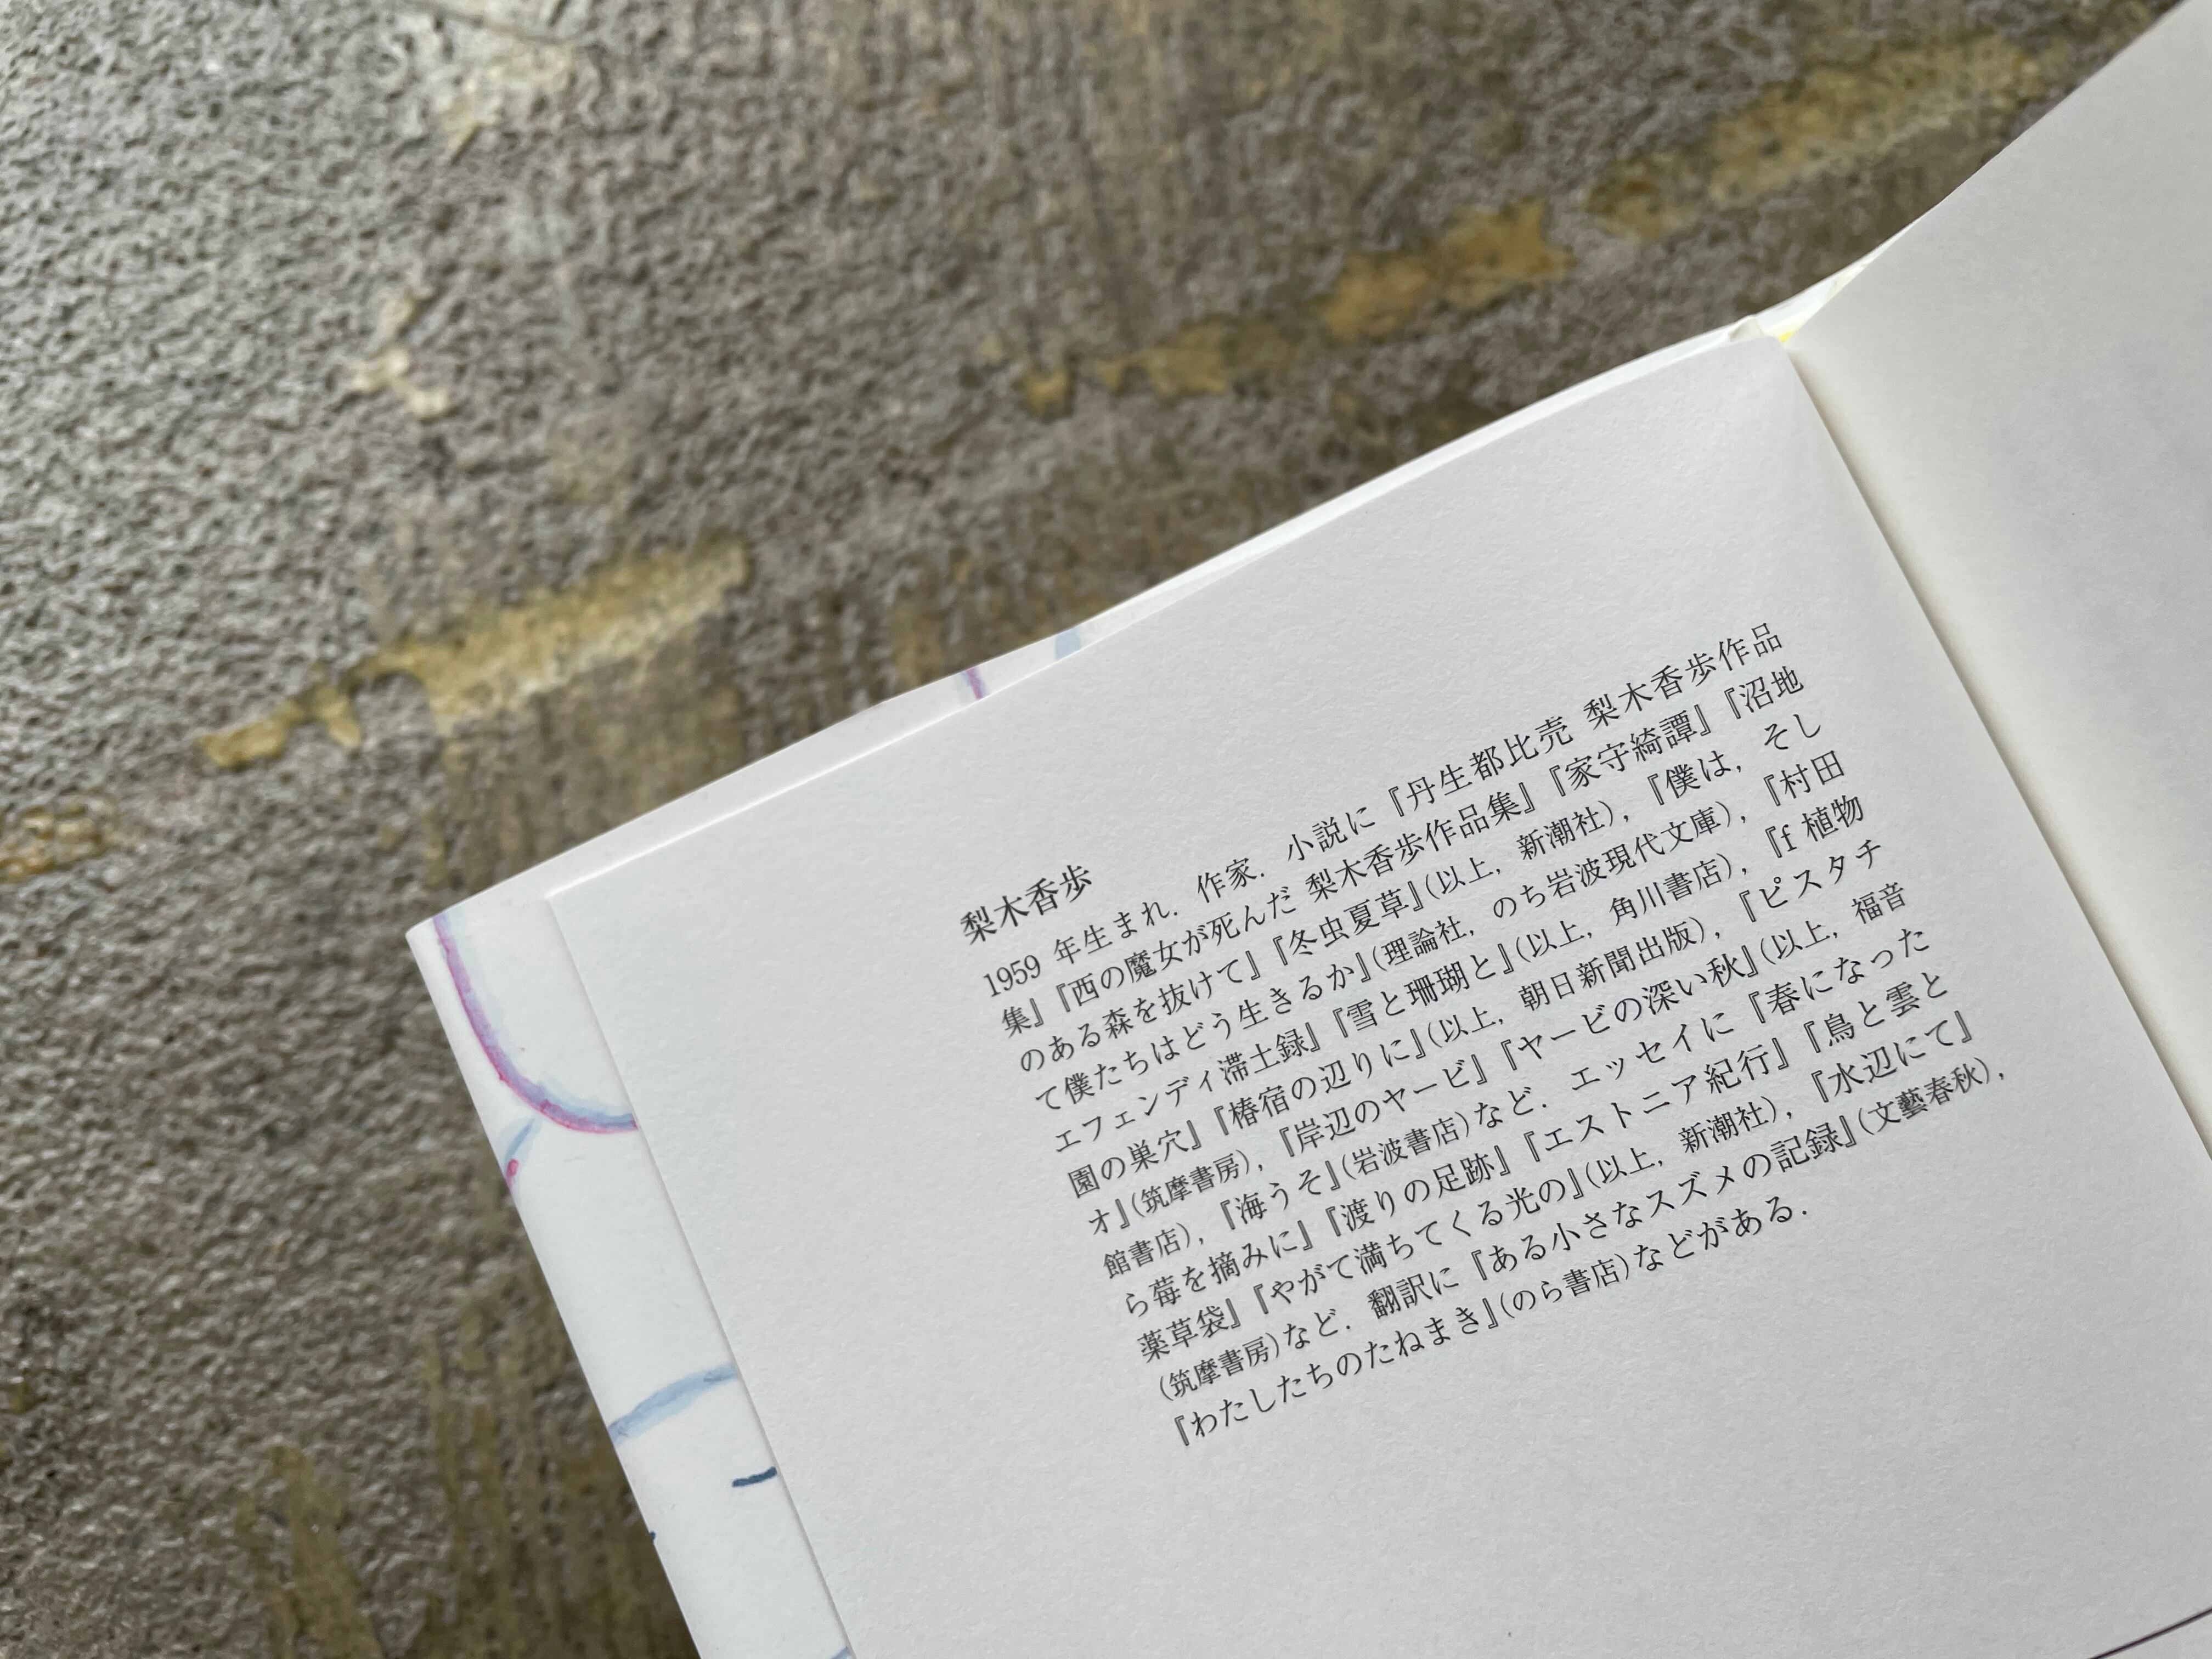 梨木香歩
1959 年生まれ．作家．小説に『丹生都比売 梨木香歩作品
集』『西の魔女が死んだ 梨木香歩作品集』『家守綺譚』『沼地
のある森を抜けて』『冬虫夏草』(以上，新潮社)，『僕は，そし
て僕たちはどう生きるか』(理論社，のち岩波現代文庫)，『村田
エフェンディ滞土録』『雪と珊瑚と』(以上，角川書店)，『f 植物
園の巣穴』『椿宿の辺りに』(以上，朝日新聞出版)，『ピスタチ
オ』(筑摩書房)，『岸辺のヤービ』『ヤービの深い秋』(以上，福音
館書店)，『海うそ』(岩波書店)など．エッセイに『春になった
ら莓を摘みに』『渡りの足跡』『エストニア紀行』『鳥と雲と
薬草袋』『やがて満ちてくる光の』(以上，新潮社)，『水辺にて』
(筑摩書房)など．翻訳に『ある小さなスズメの記録』(文藝春秋)，
『わたしたちのたねまき』(のら書店)などがある．